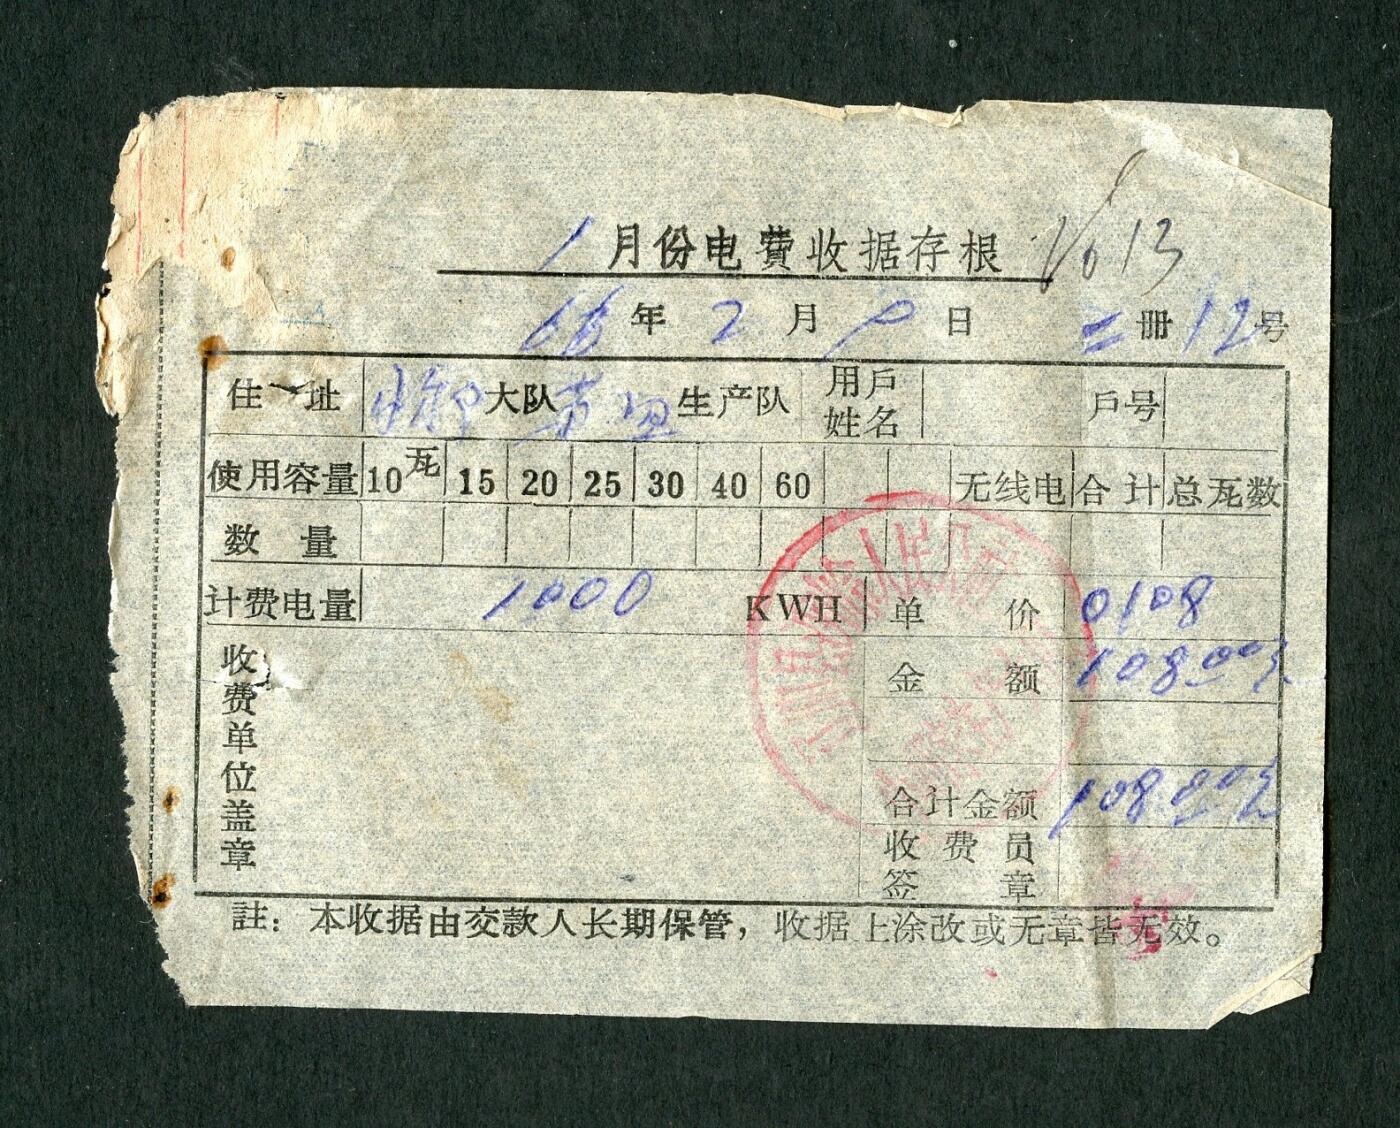 1月份电费收据存根
1613
66年2月 日 二册12号
住址 大队 生产队 用戶姓名 戶号
使用容量 10瓦 15 20 25 30 40 60 无线电 合计 总瓦数
数量
计费电量 1000 KWH 单价 0108
收费单位盖章 金额 108.00
合计金额 108.00
收费员签章
註：本收据由交款人长期保管，收据上涂改或无章皆无效。